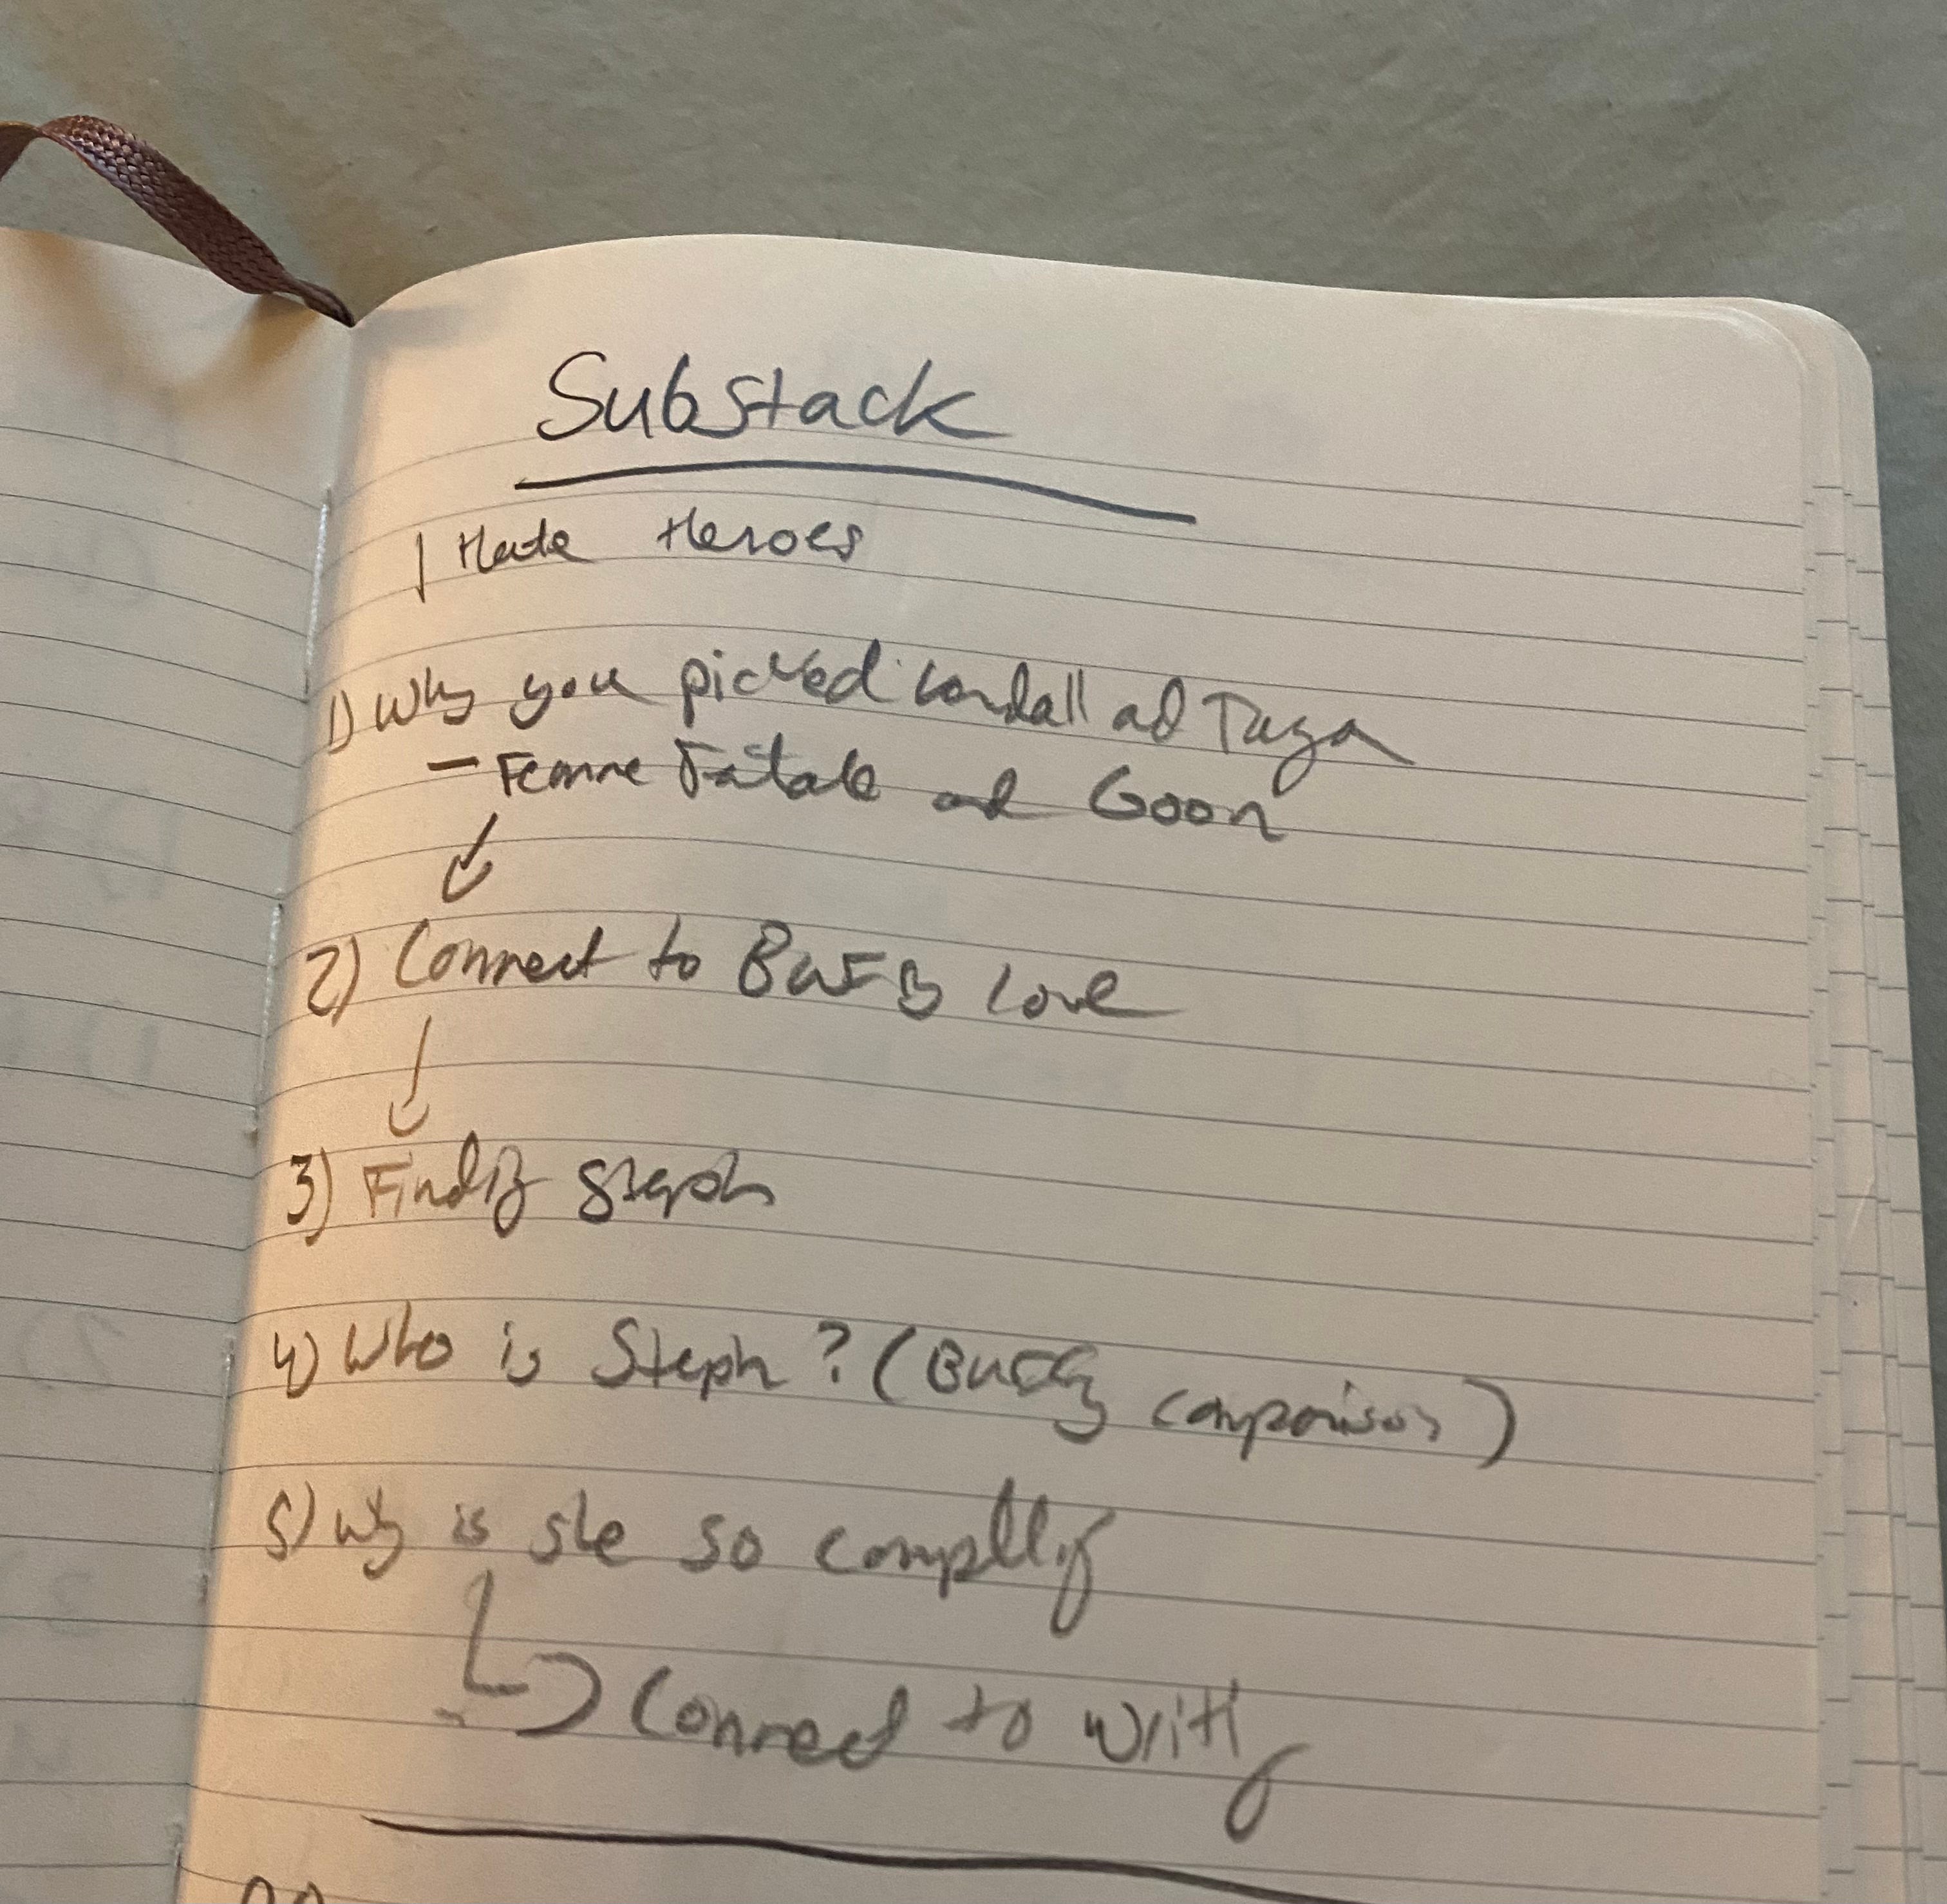 Substack
I Hate Heroes
1) Why you picked Kendall ad Taiga
- Femme Fatale and Goon
2) Connect to Buffy love
3) Finding Steph
4) Who is Steph? (Buffy comparison)
5) Why is she so complling
Connect to writing